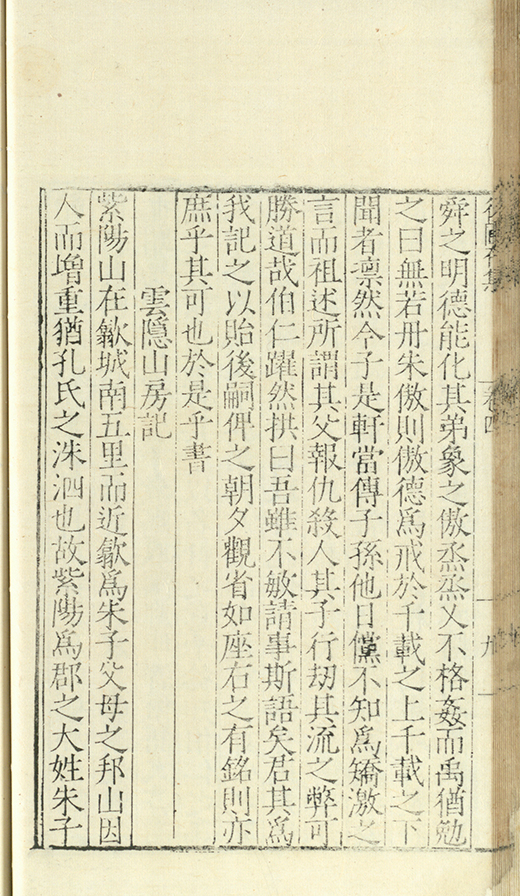 卷四
九
舜之明德能化其弟象之傲烝烝乂不格姦而禹猶勉
之曰無若丹朱傲則傲德爲戒於千載之上千載之下
聞者凛然今子是軒當傳子孫他日儻不知爲矯激之
言而祖述所謂其父報仇殺人其子行劫其流之弊可
勝道哉伯仁躍然拱曰吾雖不敏請事斯語矣君其爲
我記之以貽後嗣俾之朝夕觀省如座右之有銘則亦
庶乎其可也於是乎書
雲隱山房記
紫陽山在歙城南五里而近歙爲朱子父母之邦山因
人而增重猶孔氏之洙泗也故紫陽爲郡之大姓朱子